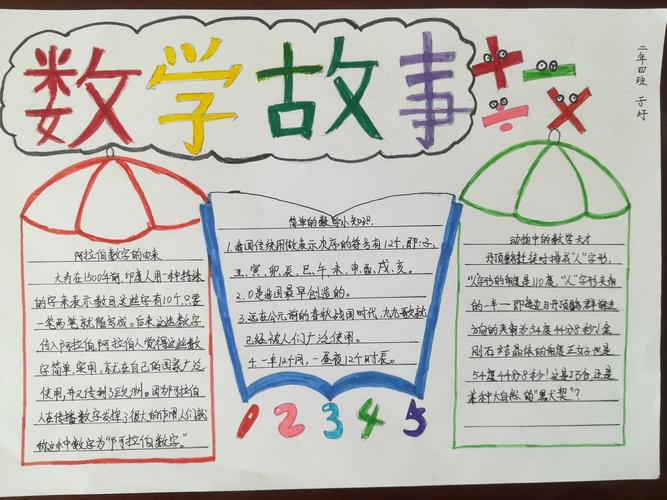 数学故事
+ - ÷ ×
二年四班 于圩
阿拉伯数字的由来
大约在1500年前,印度人用一种特殊
的字来表示数目这些字有10个,只要
一笔两笔就能写成。后来这些数字
传入阿拉伯,阿拉伯人觉得这些数
字简单、实用,就在自己的国家广泛
使用,并又传到了欧洲。因为阿拉伯
人在传播数字发挥了很大的作用,人们就
称这种数字为“阿拉伯数字”。
简单的数学小知识:
1.我国传统用做表示次序的符号有12个,即:子、
丑、寅、卯、辰、巳、午、未、申、酉、戌、亥。
2.0是我国最早创造的。
3.远在公元前的春秋战国时代,九九歌就
已经被人们广泛使用。
4.一年12个月,一昼夜12个时辰。
1 2 3 4 5
动物中的数学天才
丹顶鹤迁徙时排成“人”字形。
“人”字形的角度是110度,“人”字形夹角
的一半——即每边与丹顶鹤群前进
方向的夹角为54度44分8秒!金
刚石结晶体的角度正好也是
54度44分8秒!这是巧合还是
某种大自然的“默契”?